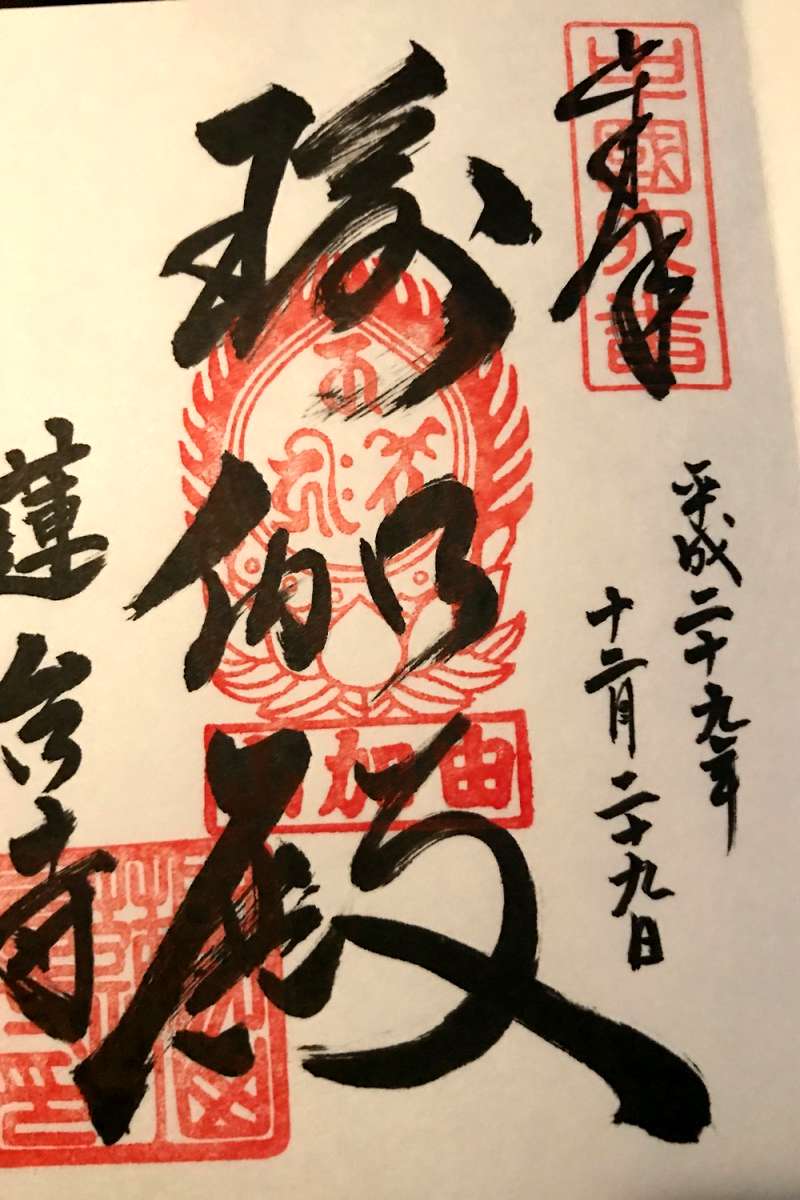 奉拝
平成二十九年
十二月二十九日
瑜伽殿
由加山
蓮台寺